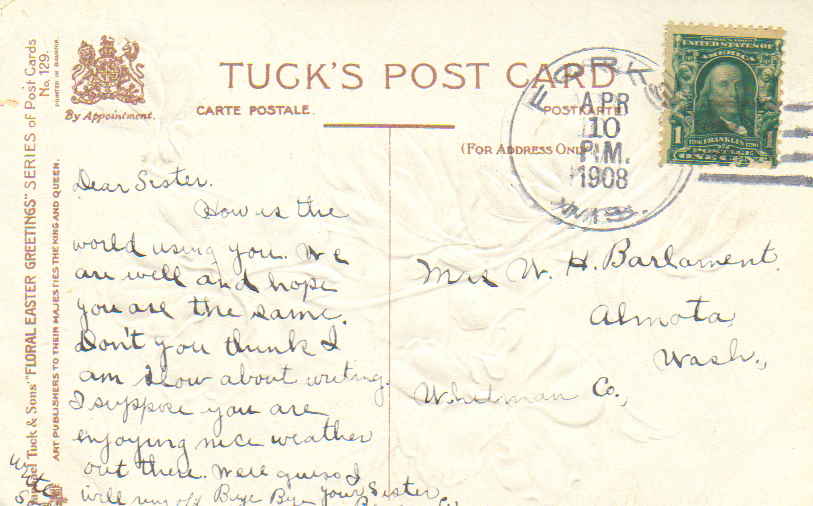 TUCK'S POST CARD
CARTE POSTALE.
POSTKARTE
(FOR ADDRESS ONLY
By Appointment.
Tuck & Sons' "FLORAL EASTER GREETINGS" SERIES of Post Cards
No. 129.
ART PUBLISHERS TO THEIR MAJESTIES THE KING AND QUEEN.
APR
10
P.M.
1908
UNITED STATES OF
AMERICA
1
FRANKLIN
POSTAGE
ONE CENT
Dear Sister.
How is the
world using you. We
are well and hope
you are the same.
Don't you think I
am slow about writing.
I suppose you are
enjoying nice weather
out there. Well guess I
will ring off Bye Bye your Sister
write
Mrs W. H. Barlament.
Almota
Wash.,
Whitman Co.,